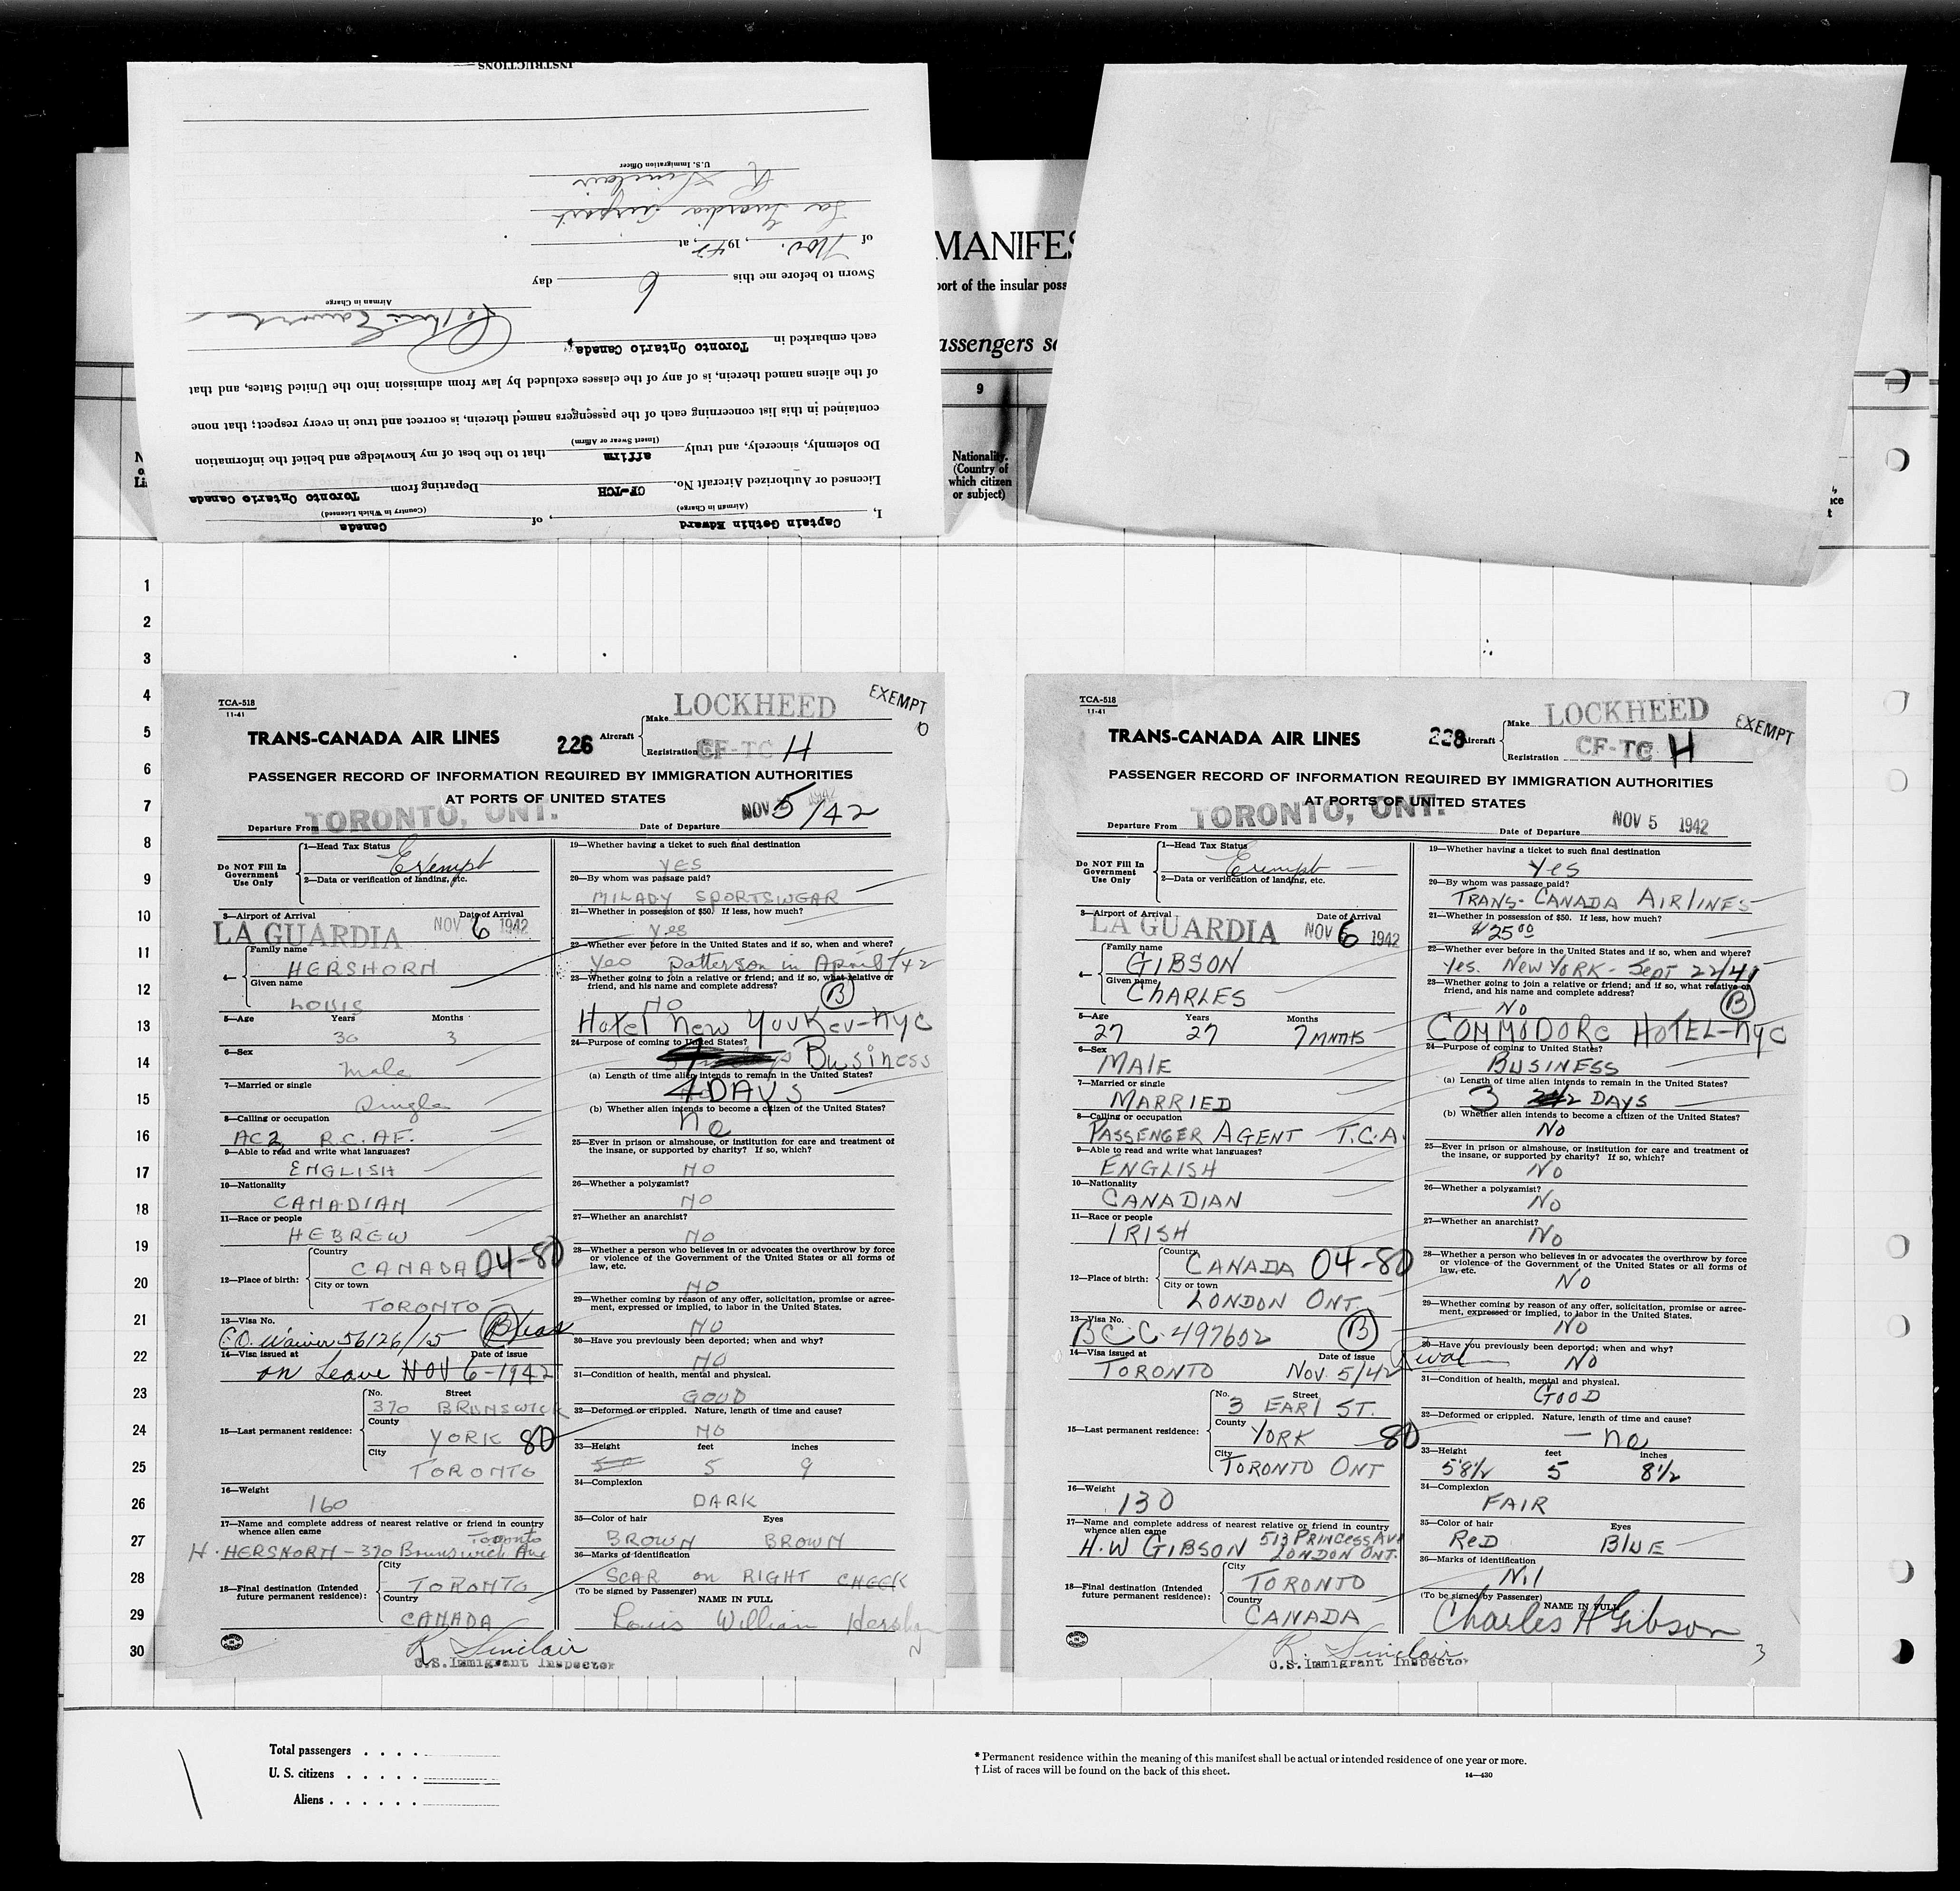 INSTRUCTIONS
I, Captain Gethin Edward, of Canada
(Airman in Charge) (Country in Which Licensed)
Licensed or Authorized Aircraft No. CF-TCH Departing from Toronto Ontario Canada
Do solemnly, sincerely, and truly affirm that to the best of my knowledge and belief the information
(Insert Swear or Affirm)
contained in this list concerning each of the passengers named therein, is correct and true in every respect; that none
of the aliens named therein, is of any of the classes excluded by law from admission into the United States, and that
each embarked in Toronto Ontario Canada
Airman in Charge
Sworn to before me this 6 day
of Nov., 1942, at
La Guardia Airport
R Sinclair
U.S. Immigration Officer
MANIFES
port of the insular poss
assengers
9
Nationality.
(Country of
which citizen
or subject)
1
2
3
4
5
6
7
8
9
10
11
12
13
14
15
16
17
18
19
20
21
22
23
24
25
26
27
28
29
30
TCA-518
11-41
LOCKHEED
EXEMPT
TRANS-CANADA AIR LINES 226 Aircraft Make
Registration CF-TC H
PASSENGER RECORD OF INFORMATION REQUIRED BY IMMIGRATION AUTHORITIES
AT PORTS OF UNITED STATES
Departure From TORONTO, ONT. Date of Departure NOV 5/42
Do NOT Fill In Government Use Only
1—Head Tax Status Exempt
2—Data or verification of landing, etc.
3—Airport of Arrival LA GUARDIA Date of Arrival NOV 6 1942
4— Family name HERSHORN
Given name LOUIS
5—Age Years 30 Months 3
6—Sex Male
7—Married or single Single
8—Calling or occupation AC2 R.C.A.F.
9—Able to read and write what languages? ENGLISH
10—Nationality CANADIAN
11—Race or people HEBREW
12—Place of birth: Country CANADA 04-80
City or town TORONTO
13—Visa No. C.O. Waiver 56126/15 B
14—Visa issued at Date of issue
on Leave NOV 6-1942
15—Last permanent residence: No. Street 370 BRUNSWICK
County YORK 80
City TORONTO
16—Weight 160
17—Name and complete address of nearest relative or friend in country whence alien came
H. HERSHORN - 370 Brunswick Ave Toronto
18—Final destination (Intended future permanent residence): City TORONTO
Country CANADA
R Sinclair
U.S. Immigrant Inspector
19—Whether having a ticket to such final destination
YES
20—By whom was passage paid?
MILADY SPORTSWEAR
21—Whether in possession of $50. If less, how much?
yes
22—Whether ever before in the United States and if so, when and where?
Yes Patterson in April/42
23—Whether going to join a relative or friend; and if so, what relative or friend, and his name and complete address?
NO B
Hotel New Yorker-NYC
24—Purpose of coming to United States?
Business
(a) Length of time alien intends to remain in the United States?
4 DAYS
(b) Whether alien intends to become a citizen of the United States?
no
25—Ever in prison or almshouse, or institution for care and treatment of the insane, or supported by charity? If so, which?
NO
26—Whether a polygamist?
NO
27—Whether an anarchist?
NO
28—Whether a person who believes in or advocates the overthrow by force or violence of the Government of the United States or all forms of law, etc.
NO
29—Whether coming by reason of any offer, solicitation, promise or agreement, expressed or implied, to labor in the United States.
NO
30—Have you previously been deported; when and why?
NO
31—Condition of health, mental and physical.
GOOD
32—Deformed or crippled. Nature, length of time and cause?
NO
33—Height feet 5 inches 9
34—Complexion
DARK
35—Color of hair Eyes
BROWN BROWN
36—Marks of identification
SCAR on RIGHT CHEEK
(To be signed by Passenger) NAME IN FULL
Louis William Hershorn
TCA-518
11-41
LOCKHEED
EXEMPT
TRANS-CANADA AIR LINES 228 Aircraft Make
Registration CF-TC H
PASSENGER RECORD OF INFORMATION REQUIRED BY IMMIGRATION AUTHORITIES
AT PORTS OF UNITED STATES
Departure From TORONTO, ONT. Date of Departure NOV 5 1942
Do NOT Fill In Government Use Only
1—Head Tax Status Exempt
2—Data or verification of landing, etc.
3—Airport of Arrival LA GUARDIA Date of Arrival NOV 6 1942
4— Family name GIBSON
Given name CHARLES
5—Age 27 Years 27 Months 7 MNTHS
6—Sex MALE
7—Married or single MARRIED
8—Calling or occupation PASSENGER AGENT T.C.A.
9—Able to read and write what languages? ENGLISH
10—Nationality CANADIAN
11—Race or people IRISH
12—Place of birth: Country CANADA 04-80
City or town LONDON ONT.
13—Visa No. B.C.C. 497602 B
14—Visa issued at TORONTO Date of issue Nov. 5/42
15—Last permanent residence: No. Street 3 EARL ST.
County YORK 80
City TORONTO ONT
16—Weight 130
17—Name and complete address of nearest relative or friend in country whence alien came
H.W GIBSON 513 PRINCESS AVE LONDON ONT.
18—Final destination (Intended future permanent residence): City TORONTO
Country CANADA
R. Sinclair
U.S. Immigrant Inspector
19—Whether having a ticket to such final destination
Yes
20—By whom was passage paid?
TRANS-CANADA AIRLINES
21—Whether in possession of $50. If less, how much?
$25.00
22—Whether ever before in the United States and if so, when and where?
Yes. NEW YORK - Sept 22/41
23—Whether going to join a relative or friend; and if so, what relative or friend, and his name and complete address?
NO B
COMMODORE HOTEL-NYC
24—Purpose of coming to United States?
BUSINESS
(a) Length of time alien intends to remain in the United States?
3 DAYS
(b) Whether alien intends to become a citizen of the United States?
NO
25—Ever in prison or almshouse, or institution for care and treatment of the insane, or supported by charity? If so, which?
NO
26—Whether a polygamist?
NO
27—Whether an anarchist?
NO
28—Whether a person who believes in or advocates the overthrow by force or violence of the Government of the United States or all forms of law, etc.
NO
29—Whether coming by reason of any offer, solicitation, promise or agreement, expressed or implied, to labor in the United States.
NO
30—Have you previously been deported; when and why?
NO
31—Condition of health, mental and physical.
GOOD
32—Deformed or crippled. Nature, length of time and cause?
— no
33—Height 5 8½ feet 5 inches 8½
34—Complexion
FAIR
35—Color of hair Eyes
RED BLUE
36—Marks of identification
Nil
(To be signed by Passenger) NAME IN FULL
Charles H Gibson
3
Total passengers . . . .
U. S. citizens . . . . .
Aliens . . . . . .
* Permanent residence within the meaning of this manifest shall be actual or intended residence of one year or more.
† List of races will be found on the back of this sheet.
14—430